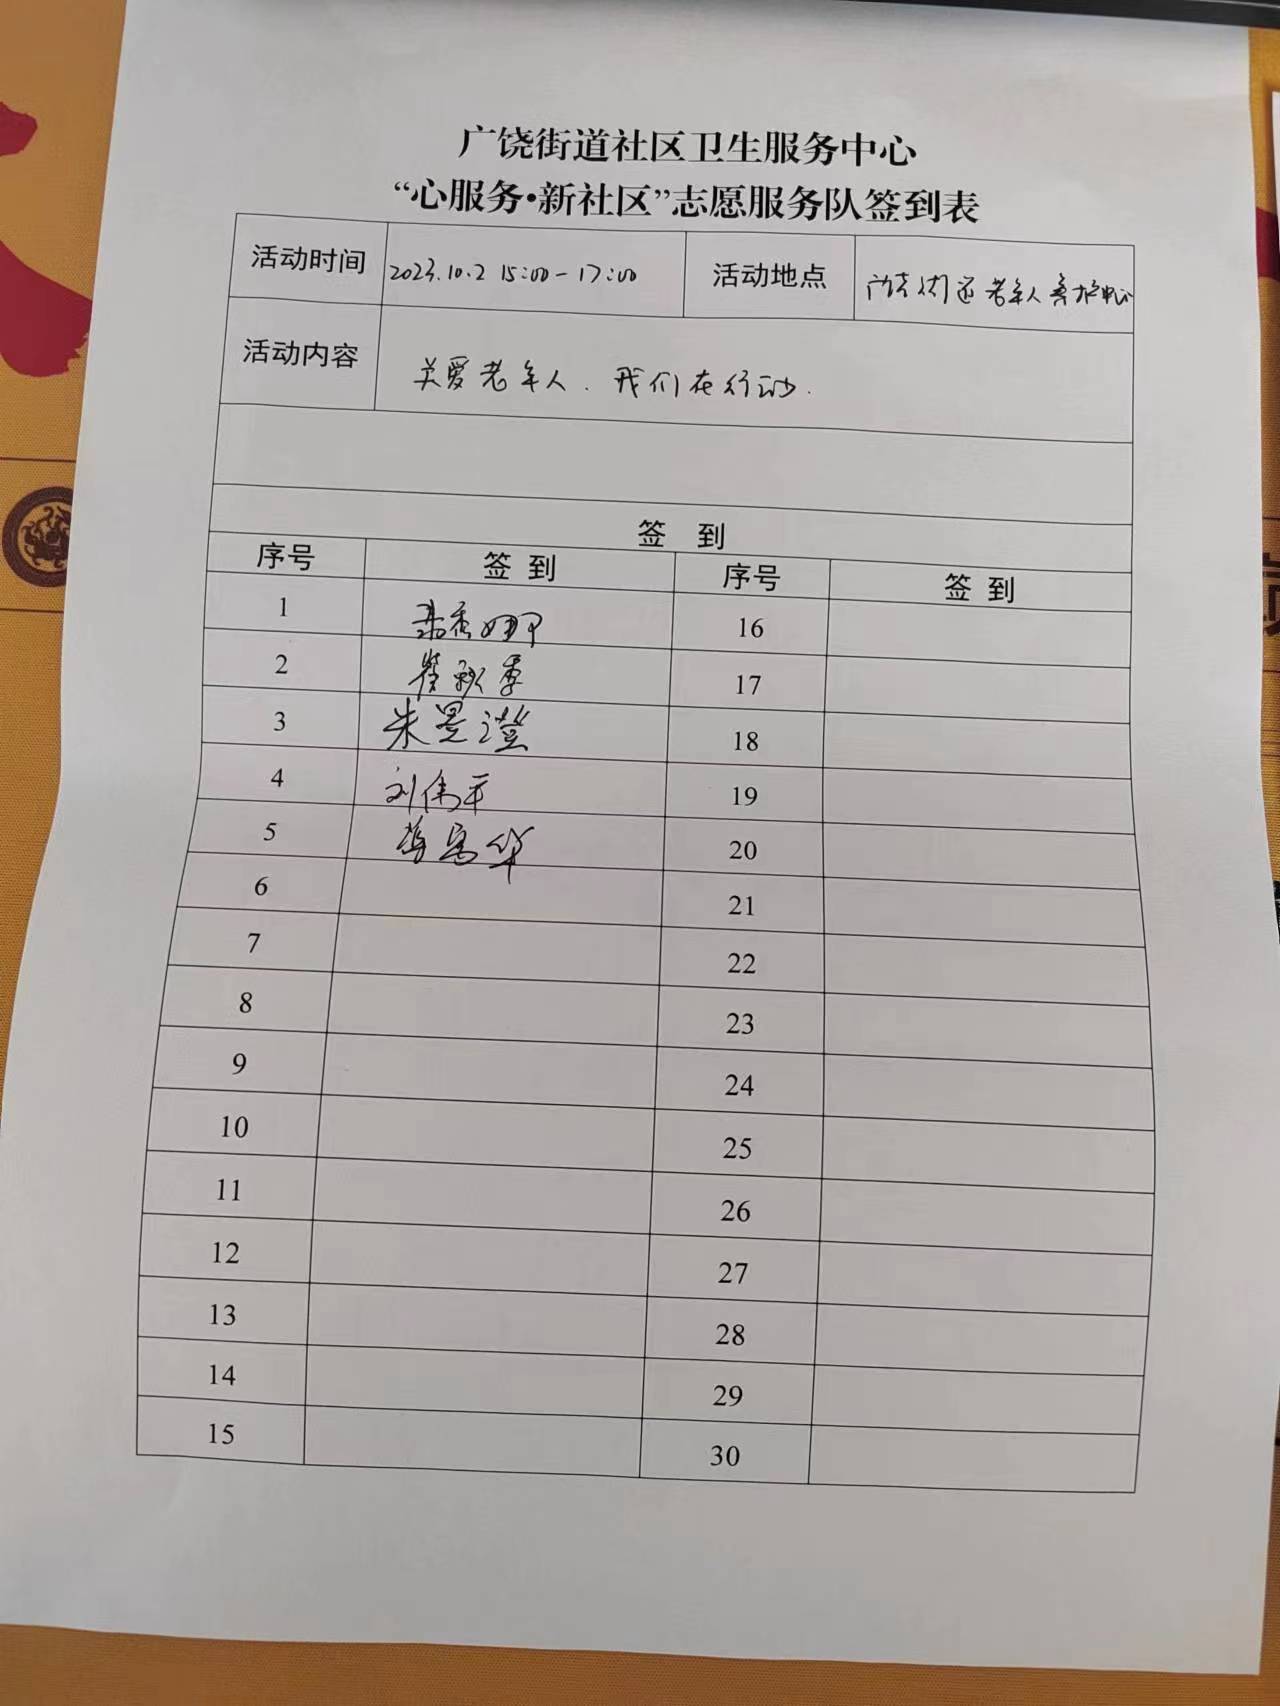 广饶街道社区卫生服务中心
“心服务·新社区”志愿服务队签到表
活动时间 2023.10.2 15:00-17:00 活动地点 广饶街道老年人养护中心
活动内容 关爱老年人、我们在行动.
签 到
序号 签 到 序号 签 到
1 聂秀娜 16
2 崔秋季 17
3 朱昱澄 18
4 刘伟平 19
5 华 20
6 21
7 22
8 23
9 24
10 25
11 26
12 27
13 28
14 29
15 30